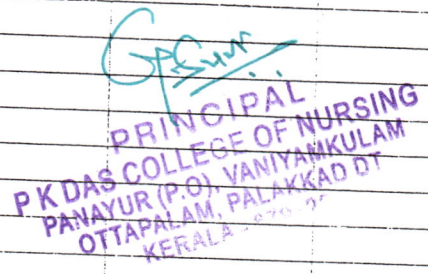 PRINCIPAL
P K DAS COLLEGE OF NURSING
PANAYUR (P.O), VANIYAMKULAM
OTTAPALAM, PALAKKAD DT
KERALA -